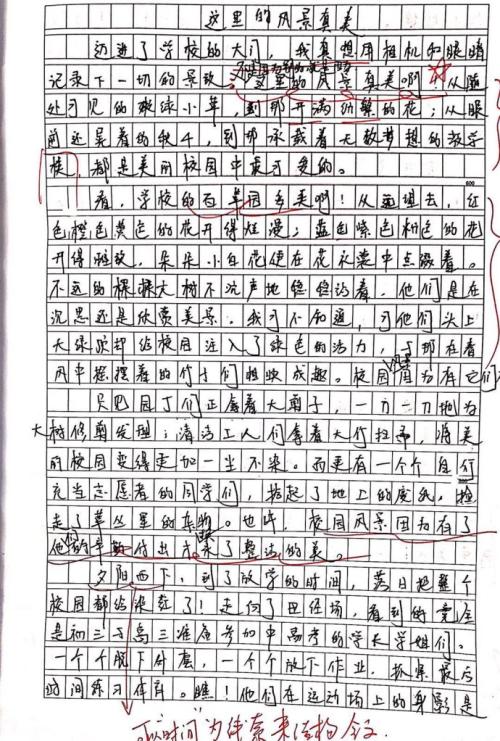 这里的风景真美
迈进了学校的大门，我真想用相机和眼睛
记录下一切的景致。这里的风景真美啊！从随
处可见的嫩绿小草，到那开满的花；从眼
前还晃着的秋千，到那承载着无数梦想的教学
楼，都是美丽校园中最可爱的。
看，学校的百草园多美啊！从西望去，红
色橙色黄色的花开得烂漫；蓝色紫色粉色的花
开得雅致，朵朵小白花便在花衣裳中点缀着。
不远的棵棵大树不沉声地伫着，他们是在
沉思还是欣赏美景，我可不知道，可他们头上
大绿顶却给校园注入了绿色的活力，与那在春
风中摇摆着的竹子们相映成趣。校园风景因为有它们
只见园丁们正拿着大剪子，一刀一刀地为
大树修剪发型；清洁工人们拿着大竹扫帚，将美
丽校园变得更加一尘不染。而更有一个个自
充当志愿者的同学们，拾起了地上的废纸，捡
走了草丛里的杂物。也许，校园风景因为有了
他们的辛勤付出才有了整洁的美。
夕阳西下，到了放学的时间，落日把整个
校园都给染红了！走向了田径场，看到的竟全
是初三与高三准备参加中高考的学长学姐们。
一个个脱下外套，一个个放下作业，抓紧最后
时间练习体育。瞧！他们在运动场上的身影是
可以"时间"为线索来结构全文